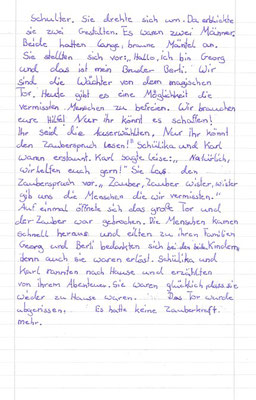 Schulter. Sie drehte sich um. Da erblickte
sie zwei Gestalten. Es waren zwei Männer.
Beide hatten lange, braune Mäntel an.
Sie stellten sich vor: „Hallo, ich bin Georg
und das ist mein Bruder Berli. Wir
sind die Wächter von dem magischen
Tor. Heute gibt es eine Möglichkeit die
vermissten Menschen zu befreien. Wir brauchen
eure Hilfe! Nur ihr könnt es schaffen!
Ihr seid die Auserwählten. Nur ihr könnt
den Zauberspruch lesen!" Schülika und Karl
waren erstaunt. Karl sagte leise: „Natürlich,
wir helfen euch gern!" Sie las den
Zauberspruch vor. „Zauber, Zauber wister, wister
gib uns die Menschen die wir vermissten."
Auf einmal öffnete sich das große Tor und
der Zauber war gebrochen. Die Menschen kamen
schnell heraus und eilten zu ihren Familien
Georg und Berli bedankten sich bei den Kindern,
denn auch sie waren erlöst. Schülika und
Karl rannten nach Hause und erzählten
von ihrem Abenteuer. Sie waren glücklich, dass sie
wieder zu Hause waren. Das Tor wurde
abgerissen. Es hatte keine Zauberkraft
mehr.